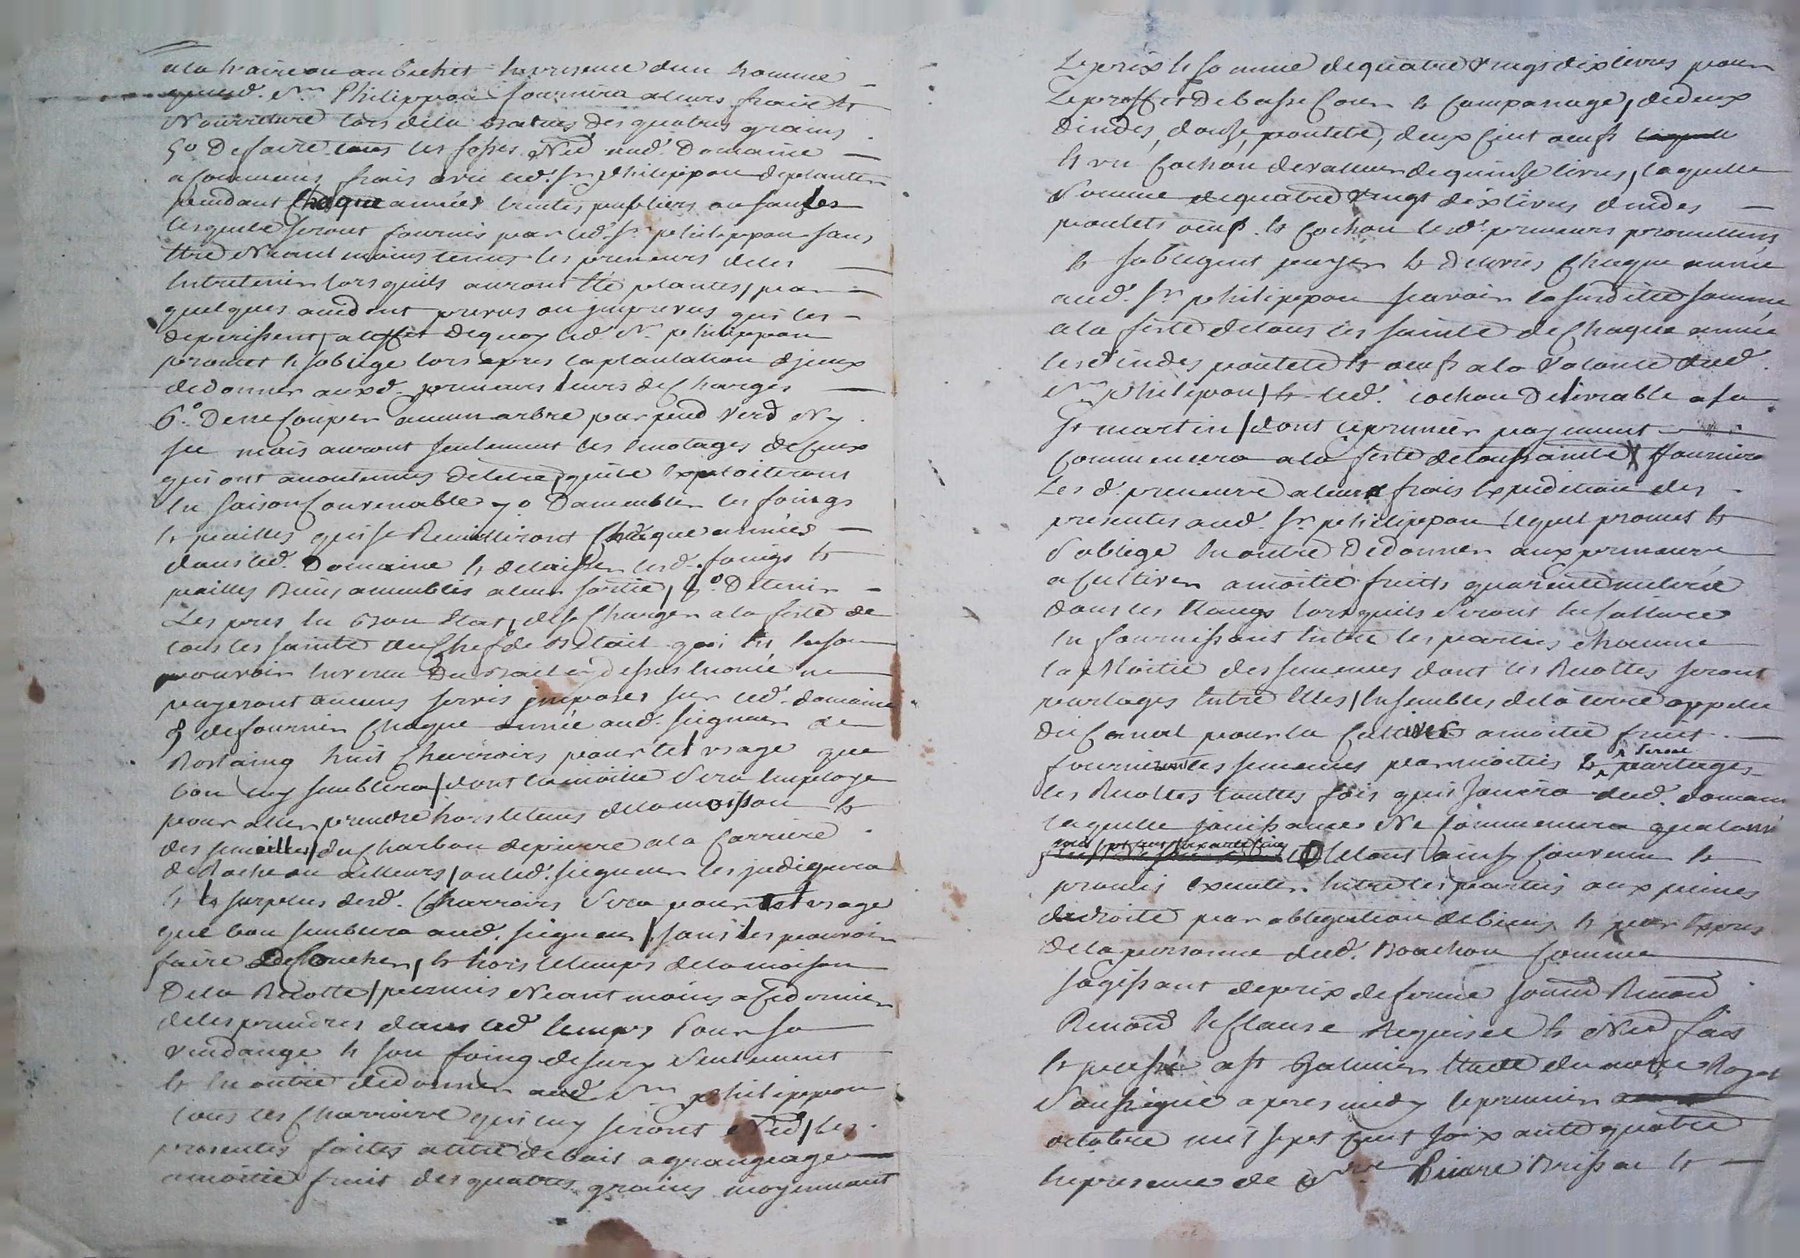 a la traire ou au bichet la presence d'un homme
que led. Sr. Philippon fournira a leurs frais et
Nourriture lors de la batture des quatres grains
5o De faire tous les fossés Néd. aud. Domaine
a communs frais avec led. Sr. philippon de planter
pendant Chaque années trentes pupliers ou saules
lesquels seront fournis par led. Sr. philippon sans
Etre Néantmoins tenus les preneurs de les
Entretenir lors quils auront été plantés, par
quelques accident prevus ou imprevus qui les
deperissent, a l'effet de quoy led. Sr. philippon
promet et soblige lors apres la plantation diceux
de donner auxd. preneurs leurs décharges
6o. De ne Couper aucun arbre par pied Verd Ny
sec mais auront seulement les emotages de ceux
qui ont accoutumés détre, quils exploiteront
En saison Convenable 7o Dameubler les foings
et pailles qui se Recuilliront Chaque années
dans led. Domaine et delaisser lesd. foings et
pailles Biens ameublés a leur sortie, 8o. De tenir
Les prés En bon Etat, et se Charger a la feste de
tous les saints du Chef de Bétail qui
pouvoir Revenu Du Bail cy dessus Enoncé ne
payeront aucuns servis imposes sur led. domaine
9 de fournir Chaque année aud. seigneur de
Rostaing huit Charroirs pour tel usage que
bon luy semblera, dont la moitié sera Employé
pour aller prendre hors le tems de la moisson et
des semailles, du Charbon de pierre a la Carriere
de Roche ou ailleurs, ou led. seigneur les jndiquera
Et le surplus desd. Charroirs sera pour tel usage
que bon semblera aud. seigneur, sans les pouvoir
faire Decoucher, et hors le temps de la moison
De la Recotte, permis Néantmoins a ce dernier
de les prendres dans led. temps Pour sa
Vendange et son foing de sury seulement
et En outre de donner aud. Sr. philippon
tous les Charroirs qui luy seront Néd, les
presentes faites a titre de bail a grangeage
amoitié fruit des quatres grains moyennant
Le prix et somme de quatre vingt dix livres pour
Le proffit de basse Cour et Companage, de deux
dindes, douze, poulets, deux Cent oeufs
et un Cochon de valleur de quinze livres, laquelle
Somme de quatre vingt dix livres dindes
poulets oeufs et Cochon lesd. preneurs promettent
et sobligent payer et Delivrés Chaque année
aud. Sr. philippon scavoir la susditte somme
a la feste de tous les saints de Chaque année
les dindes poulets et oeufs a la Volonté dud.
Sr. philippon, et led. cochon Delivrable a la
St martin, dont le premier payement
Commencera a la feste de toussaints, fournira
Les d. preneurs a leurs frais Expedition des
presentes aud. Sr. philippon lequel promet et
soblige En outre De donner aux preneurs
a Cultiver amoitié fruits
dans les Etangs lors quils seront En Culture
En fournissant Entre les parties Chacune
la Moitié des semences dont les Recottes seront
partages Entre Elles, Ensembles de la terre appellee
du Canal pour la Cultiver amoitié fruit
fourniront les semences par moitiés Et seront partages
les Recottes touttes fois qu'il jouira dud. domaine
laquelle jouissance Ne Commencera qu'a la
Et le tout ainsy Convenu et
promis Executer Entre les parties aux peines
de droits par obligation de biens et par Expres
de la personne dud. Bouchon Comme
sagissant de prix de ferme soumis Renoncé
Renonce Et Clause Requises et Néd. fait
Et passé a St Galmier Etude du notre Royal
soussigné apres midy le premier
octobre mil sept cent soixante quatre
En presence de Sr. Pierre Brissac et